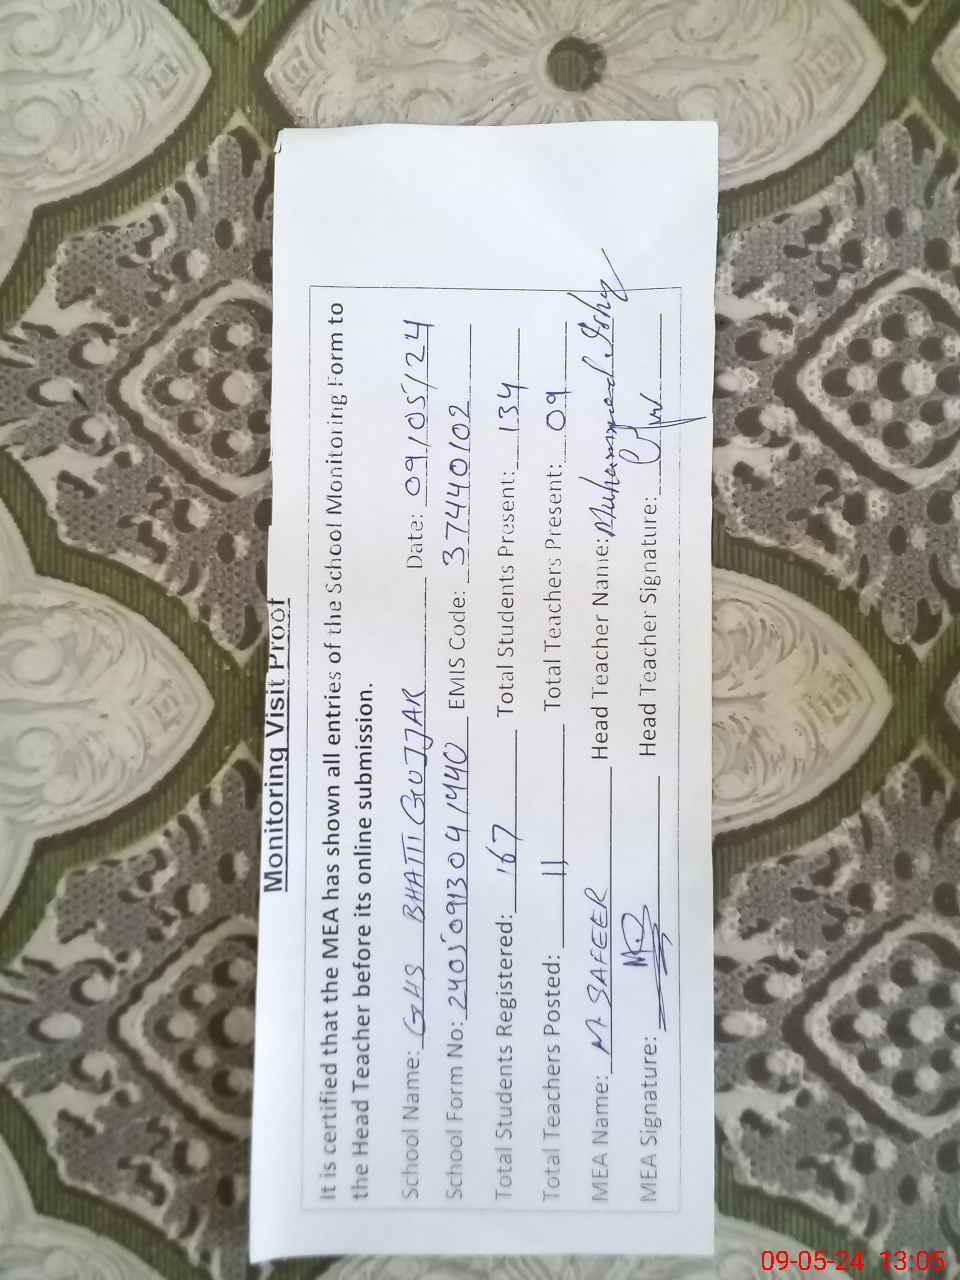 Monitoring Visit Proof
It is certified that the MEA has shown all entries of the School Monitoring Form to
the Head Teacher before its online submission.
School Name: GHS BHATTI GUJJAR Date: 09/05/24
School Form No: 24050913041440 EMIS Code: 37440102
Total Students Registered: 167 Total Students Present: 134
Total Teachers Posted: 11 Total Teachers Present: 09
MEA Name: M. SAFEER Head Teacher Name: Muhammad
MEA Signature: Head Teacher Signature:
09-05-24 13:05